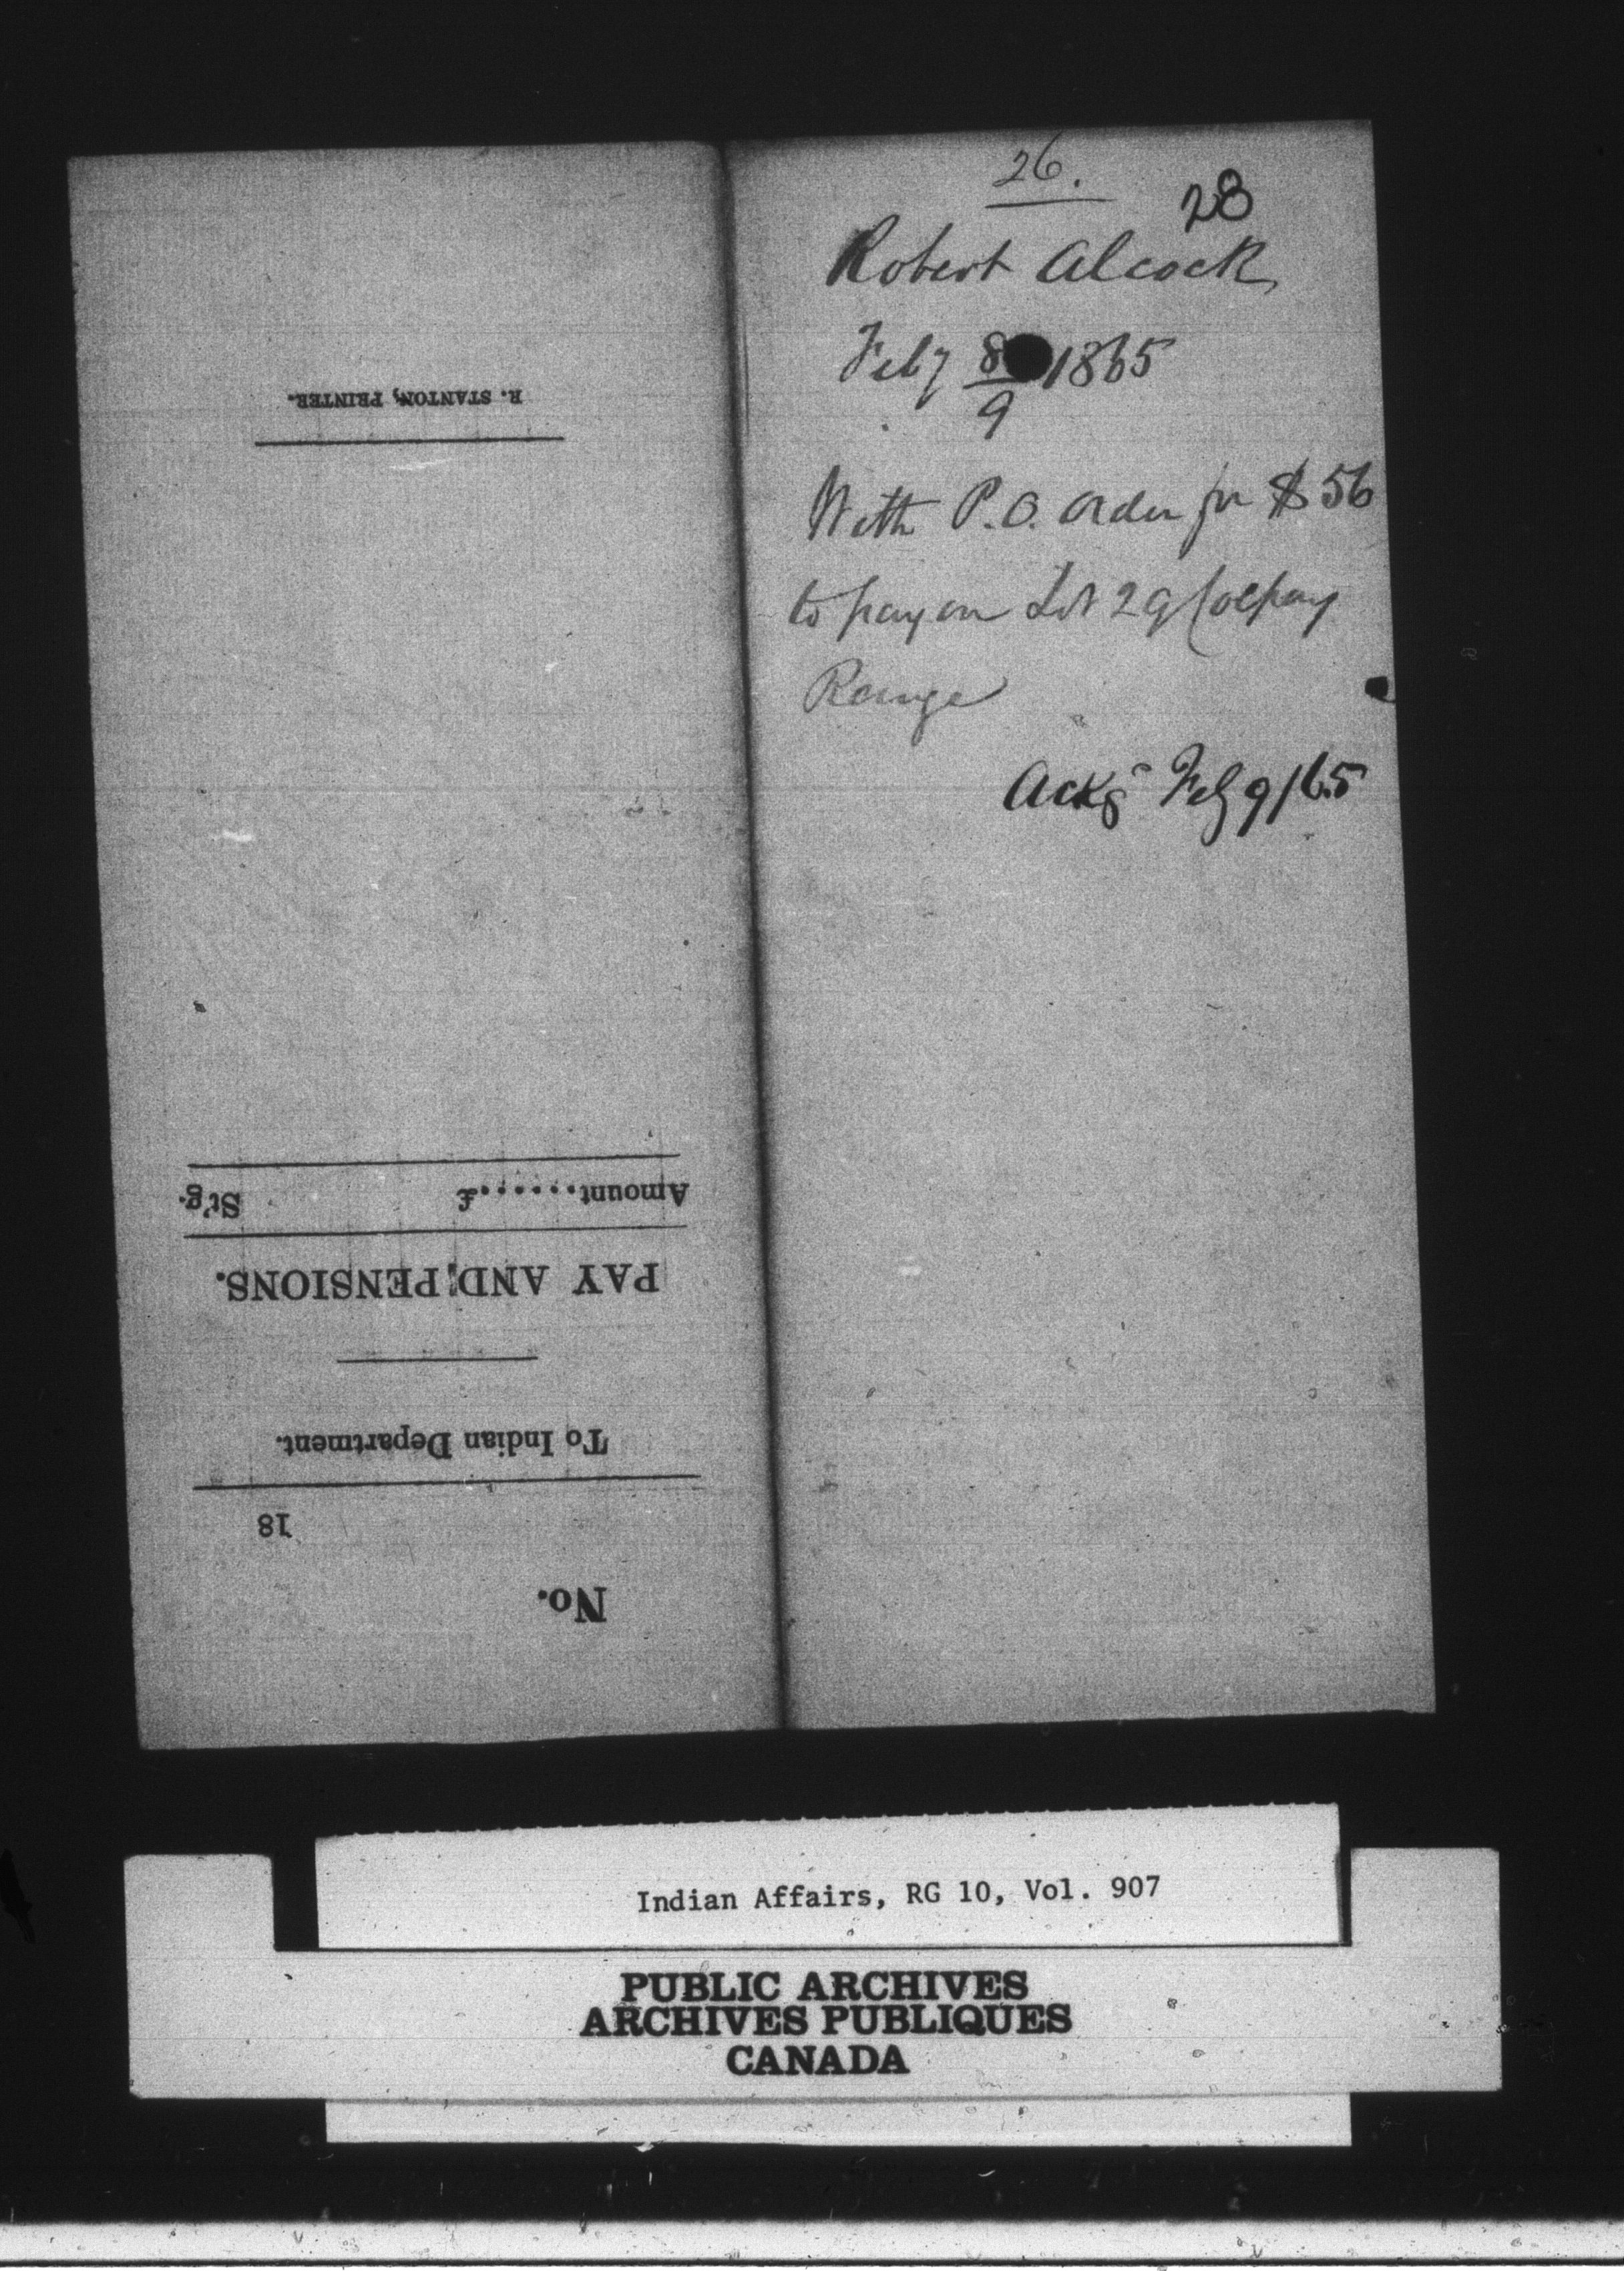 26.
28
Robert Alcock
Feby 8/9 1865
With P.O. Order for $56
to pay on Lot 29 Colpoy
Range
Ackd Feby 9/65
No.
18
To Indian Department.
PAY AND PENSIONS.
Amount.......£ St'g.
R. STANTON, PRINTER.
Indian Affairs, RG 10, Vol. 907
PUBLIC ARCHIVES
ARCHIVES PUBLIQUES
CANADA